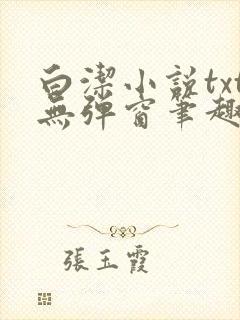 白潔小説txt
無彈窗筆趣
張玉霞